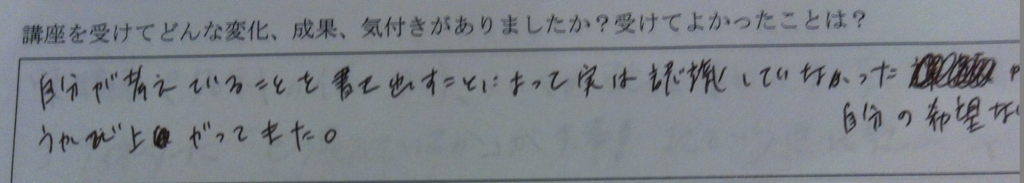 講座を受けてどんな変化、成果、気付きがありましたか？受けてよかったことは？
自分が考えていることを書き出すことによって実は認識していなかった
自分の希望な
うかび上がってきた。